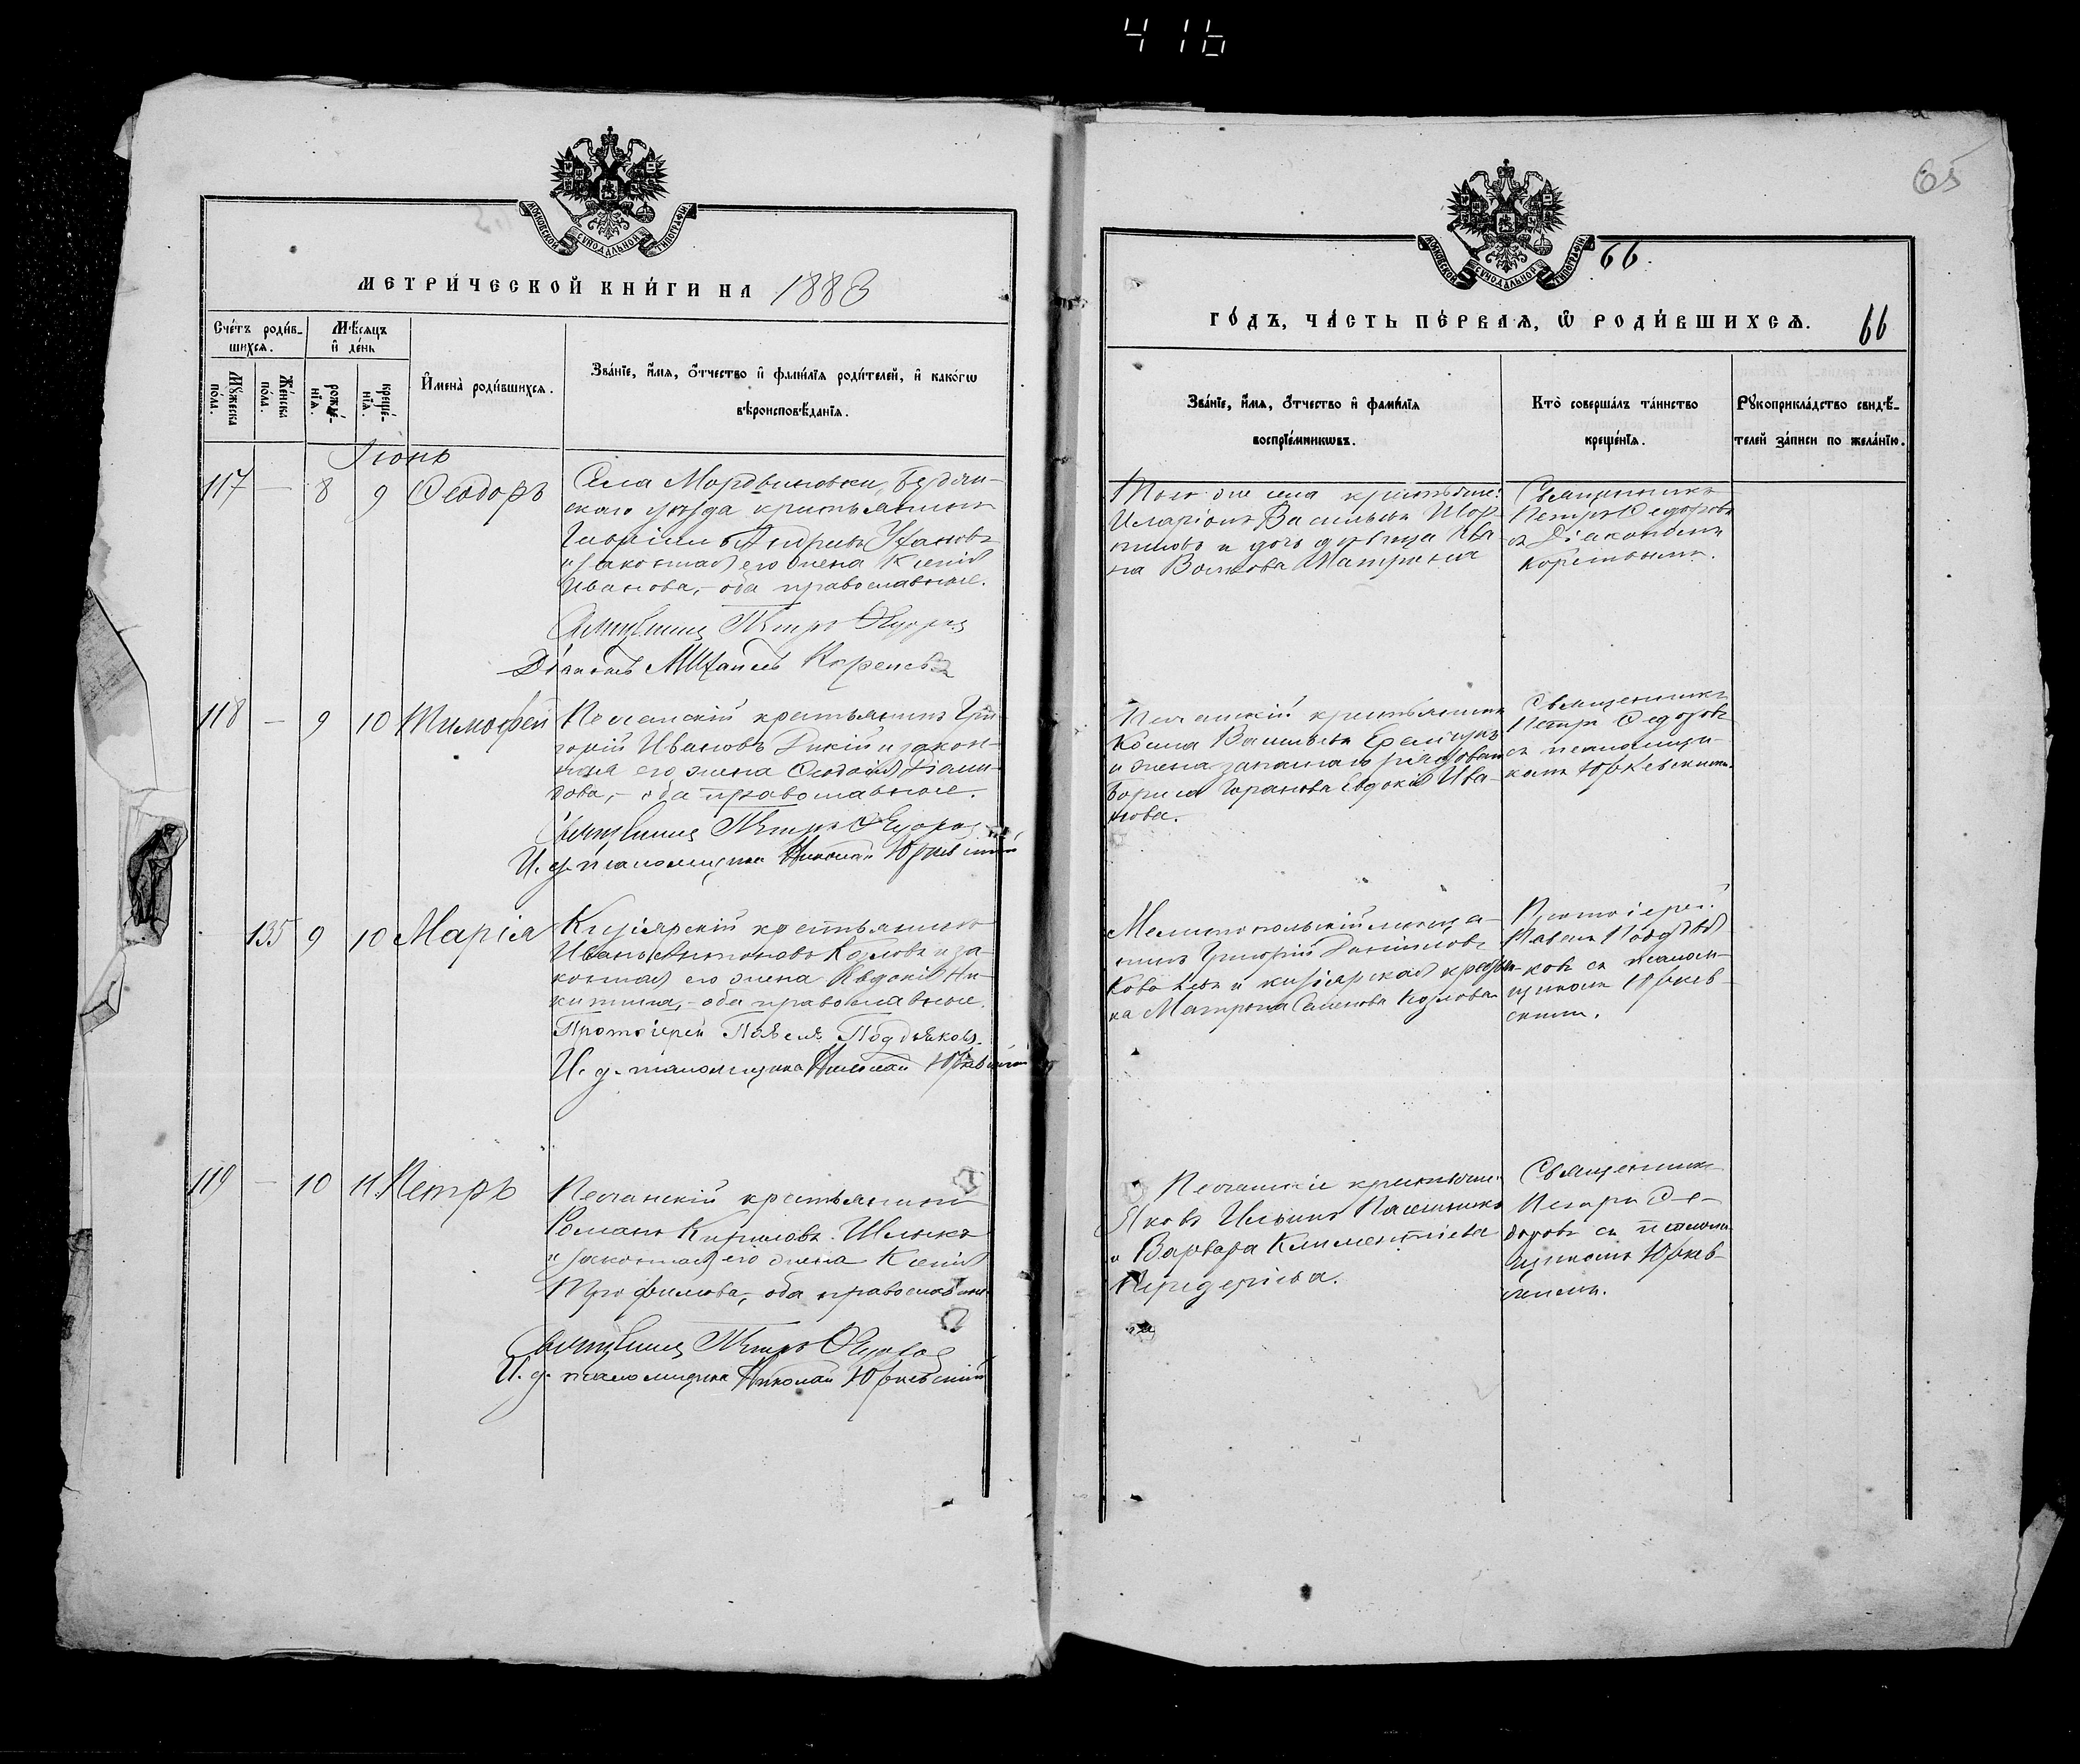 416
65
66
66
МОСКОВСКОЙ СѴНОДАЛЬНОЙ ТИПОГРАФІИ
МЕТРИ́ЧЕСКОЙ КНИ́ГИ НА 1883
Сче́тъ роди́в-
шихсѧ.
Мѣ́сѧцъ
и҆ де́нь
Мꙋ́жеска по́ла.
Же́нска по́ла.
рожде́-
нїѧ.
креще́-
нїѧ.
И҆мена̀ роди́вшихсѧ.
Зва́нїе, и҆́мѧ, ѻ҆́тчество и҆ фамі́лїѧ роди́телей, и҆ како́гѡ
вѣроисповѣ́данїѧ.
Іюнь
117 — 8 9 Ѳеодоръ
Села Мордвиновки, Бердян-
скаго уѣзда крестьянинъ
Андреевъ
и законная его жена Ксенія
Иванова, – оба православные.
Священникъ Петръ Ѳедоровъ
Діаконъ Михаилъ
118 — 9 10 Тимофей
Песчанскій крестьянинъ Гри-
горій Ивановъ Дикій и закон-
ная его жена Ѳеодосія
– оба православные.
Священникъ Петръ Ѳедоровъ
И. д. псаломщика Николай Юркевскій
135 9 10 Марія
Кизіярскій крестьянинъ
Иванъ Антоновъ Козловъ и за-
конная его жена Евдокія Ни-
китина, – оба православные.
Протоіерей Павелъ Поддьяковъ.
И. д. псаломщика Николай Юркевскій
119 — 10 11 Петръ
Песчанскій крестьянинъ
Романъ Кириловъ
и законная его жена Ксенія
Трофимова, – оба православные
Священникъ Петръ Ѳедоровъ
И. д. псаломщика Николай Юркевскій
МОСКОВСКОЙ СѴНОДАЛЬНОЙ ТИПОГРАФІИ
ГО́ДЪ, ЧА́СТЬ ПЕ́РВАѦ, Ѡ҆ РОДИ́ВШИХСѦ.
Зва́нїе, и҆́мѧ, ѻ҆́тчество и҆ фамі́лїѧ
воспрїе́мникѡвъ.
Кто̀ соверша́лъ та́инство
креще́нїѧ.
Рꙋкоприкла́дство свидѣ́-
телей за́писи по жела́нїю.
Того же села крестьяне:
Иларіонъ Васильевъ
и дочь
Матрена
Священникъ
Петръ Ѳедоровъ
съ Діакономъ
Песчанскій крестьянинъ
Косма Васильевъ
и жена запаснаго рядоваго
Бориса Евдокія Ива-
нова.
Священникъ
Петръ Ѳедоровъ
съ псаломщи-
комъ Юркевскимъ.
Мелитопольскій мѣща-
нинъ Григорій Даниловъ
и кизіярская крестьян-
ка Матрона Семенова Козлова.
Протоіерей
Павелъ Поддья-
ковъ съ псалом-
щикомъ Юркев-
скимъ.
Песчанскіе крестьяне:
Яковъ Ильинъ
и Варвара Климентіева
Священникъ
Петръ Ѳе-
доровъ съ псалом-
щикомъ Юркев-
скимъ.